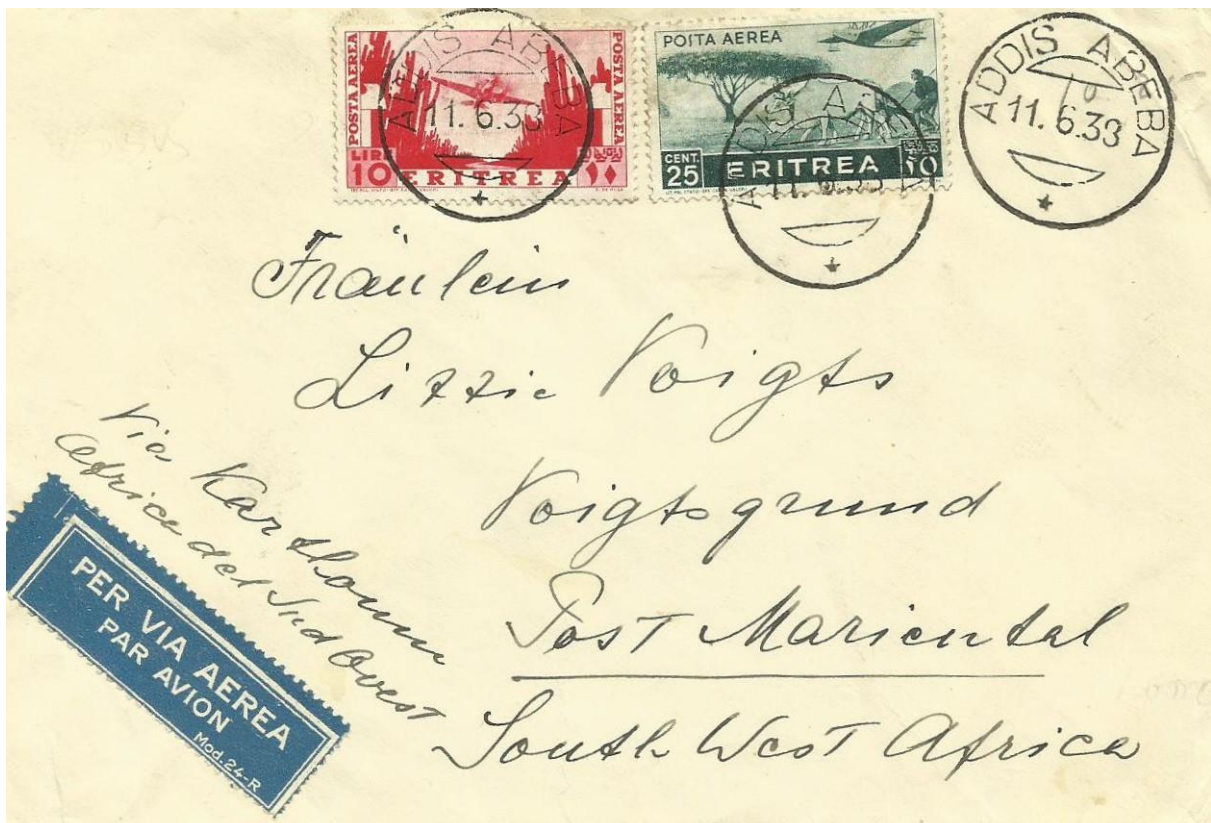 POSTA AEREA
POSTA AEREA
LIRE
10 ERITREA ١٠
POSTA AEREA
CENT.
25 ERITREA
ADDIS ABEBA
11. 6.33
ADDIS ABEBA
11. 6.33
ADDIS ABEBA
11. 6.33
Fräulein
Lizzie Voigts
Voigtsgrund
Post Mariental
South West Africa
Via Karthoum
Africa del Sud Ovest
PER VIA AEREA
PAR AVION
Mod.24-R